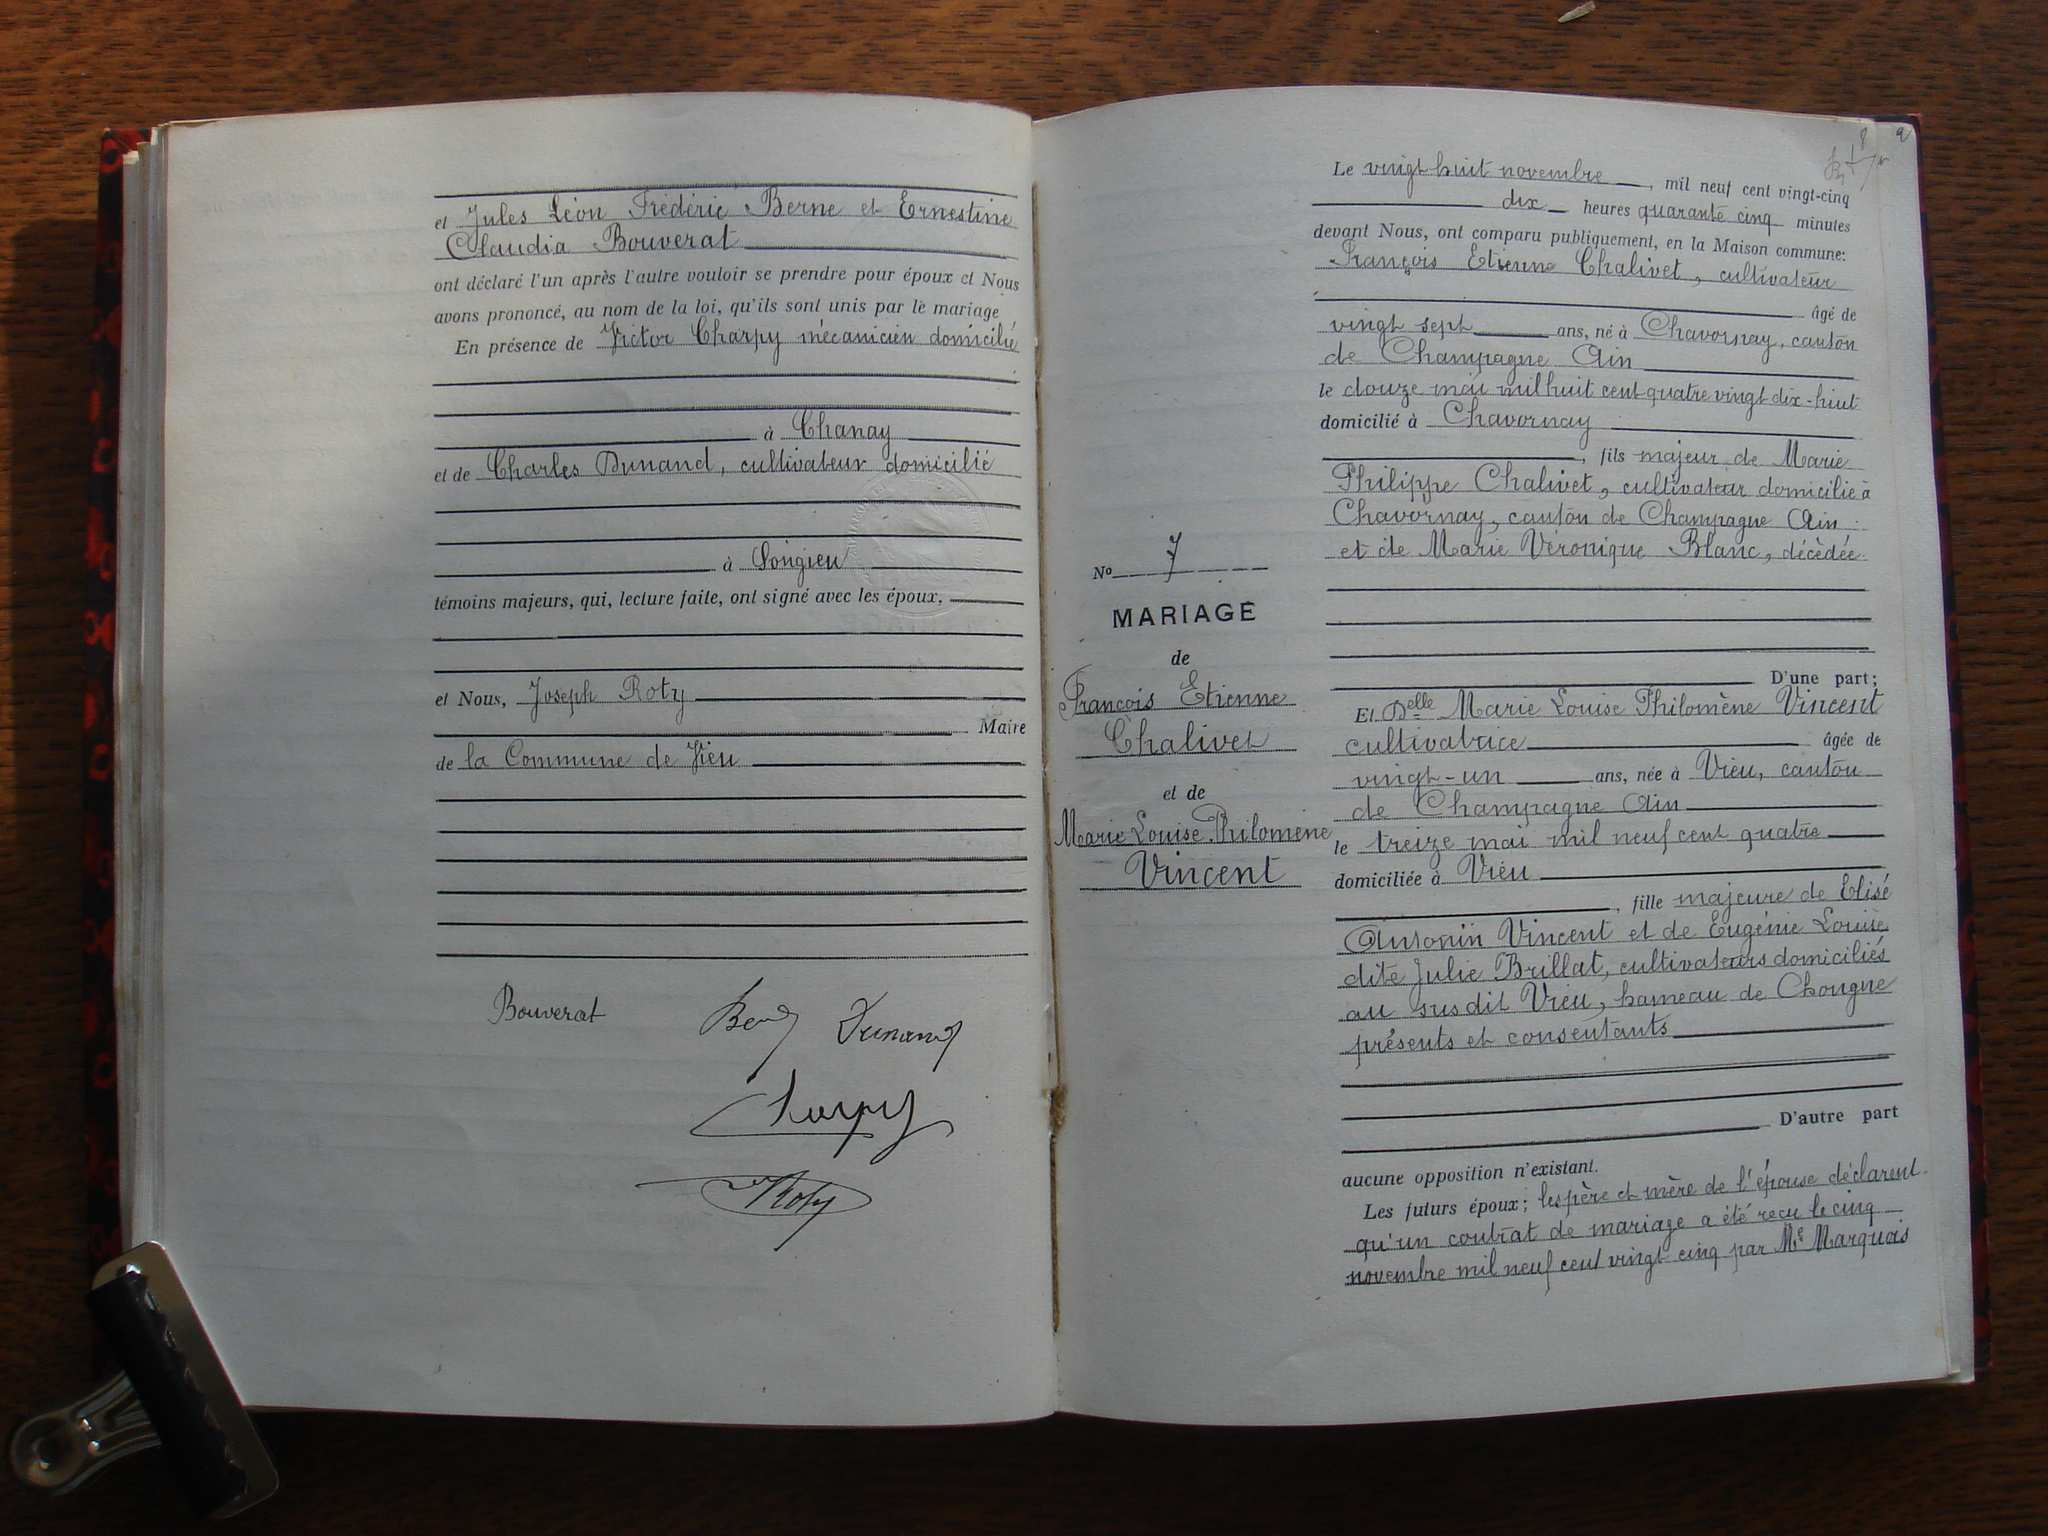 et Jules Léon Frédéric Berne et Ernestine
Claudia Bouverat
ont déclaré l'un après l'autre vouloir se prendre pour époux et Nous
avons prononcé, au nom de la loi, qu'ils sont unis par le mariage
En présence de Victor Charpy mécanicien domicilié
à Chanay
et de Charles Dunand, cultivateur domicilié
à Songieu
témoins majeurs, qui, lecture faite, ont signé avec les époux,
et Nous, Joseph Roty
Maire
de la Commune de Vieu
Bouverat Dunand
Charpy
Roty
Le vingt huit novembre, mil neuf cent vingt-cinq
dix heures quarante cinq minutes
devant Nous, ont comparu publiquement, en la Maison commune:
François Etienne Chalivet, cultivateur
âgé de
vingt sept ans, né à Chavornay, canton
de Champagne Ain
le douze mai mil huit cent quatre vingt dix-huit
domicilié à Chavornay
, fils majeur de Marie
Philippe Chalivet, cultivateur domicilié à
Chavornay, canton de Champagne Ain
et de Marie Véronique Blanc, décédée.
No 7
MARIAGE
de
François Etienne
Chalivet
et de
Marie Louise Philomène
Vincent
D'une part;
Et Delle Marie Louise Philomène Vincent
cultivatrice âgée de
vingt-un ans, née à Vieu, canton
de Champagne Ain
le treize mai mil neuf cent quatre
domiciliée à Vieu
, fille majeure de Elisé
Antonin Vincent et de Eugénie Louise
dite Julie Brillat, cultivateurs domiciliés
au susdit Vieu, hameau de Chongne
présents et consentants
D'autre part
aucune opposition n'existant.
Les futurs époux; les père et mère de l'épouse déclarent
qu'un contrat de mariage a été reçu le cinq
novembre mil neuf cent vingt cinq par Me Marquois